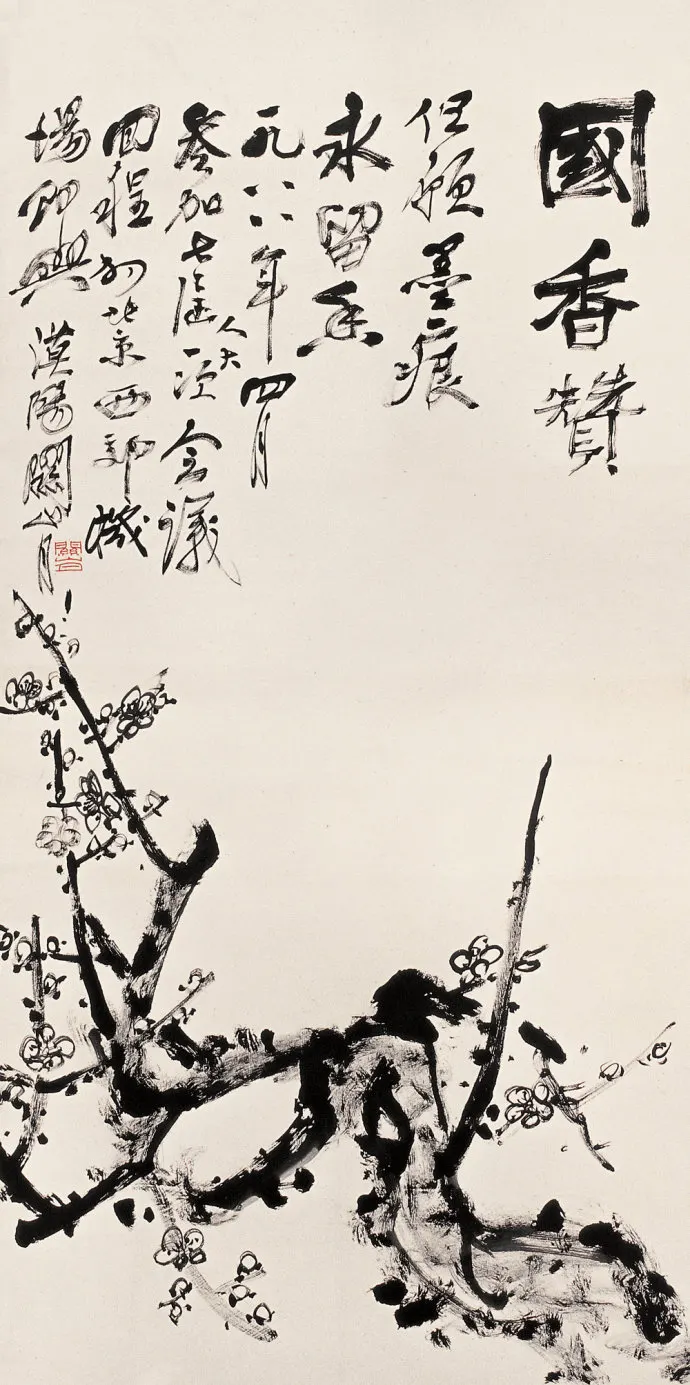 國香贊
但願墨痕
永留香
一九八八年四月
參加七届人大一次会議
回程到北京西郊機
場即興 漠陽關山月